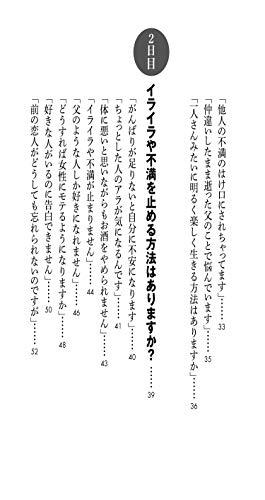 「他人の不満のはけ口にされちゃってます」……33
「仲違いしたまま逝った父のことで悩んでいます」……35
「一人さんみたいに明るく楽しく生きる方法はありますか」……36
2日目
イライラや不満を止める方法はありますか？……39
「がんばりが足りないと自分に不安になります」……40
「ちょっとした人のアラが気になるんです」……41
「体に悪いと思いながらもお酒をやめられません」……43
「イライラや不満が止まりません」……44
「父のような人しか好きになれません」……46
「どうすれば女性にモテるようになりますか」……48
「好きな人がいるのに告白できません」……50
「前の恋人がどうしても忘れられないのですが」……52